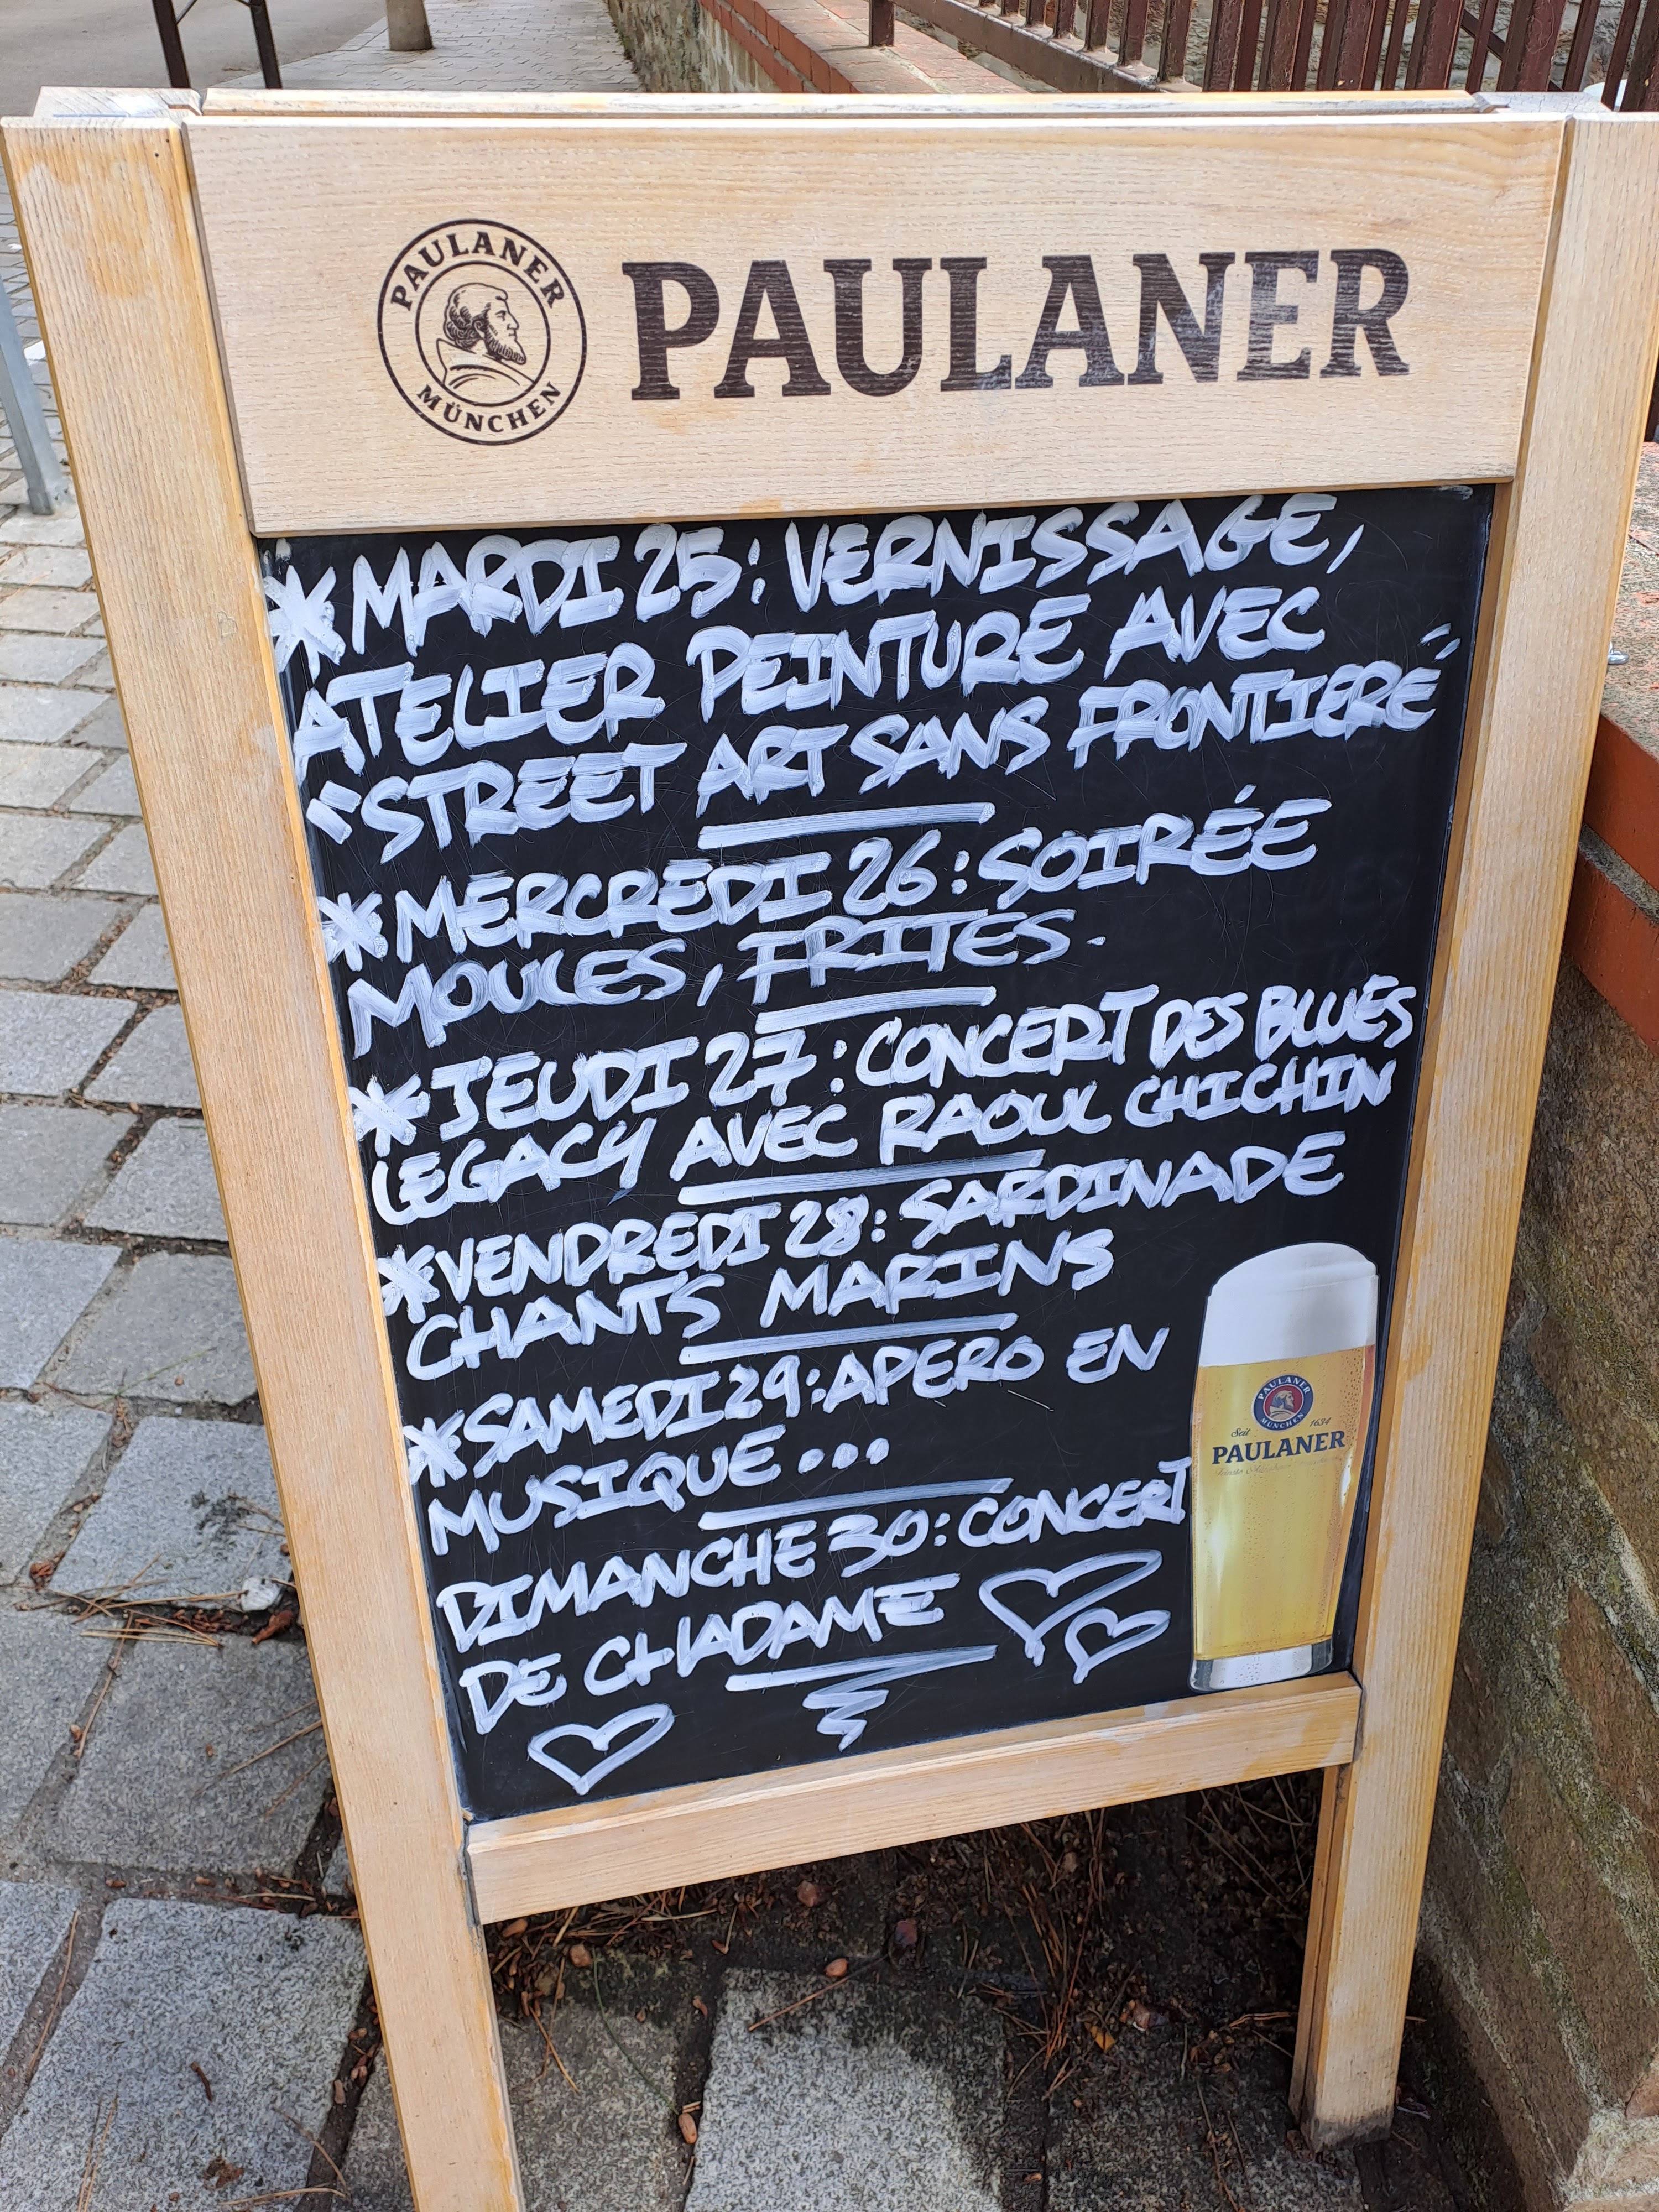 PAULANER
MÜNCHEN
PAULANER
*MARDI 25: VERNISSAGE,
ATELIER PEINTURE AVEC
"STREET ART SANS FRONTIERE"
*MERCREDI 26: SOIRÉE
MOULES, FRITES.
*JEUDI 27: CONCERT DES BLUES
LEGACY AVEC RAOUL CHICHIN
*VENDREDI 28: SARDINADE
CHANTS MARINS
*SAMEDI 29: APERO EN
MUSIQUE...
DIMANCHE 30: CONCERT
DE CHADAME
PAULANER
MÜNCHEN
Seit 1634
PAULANER